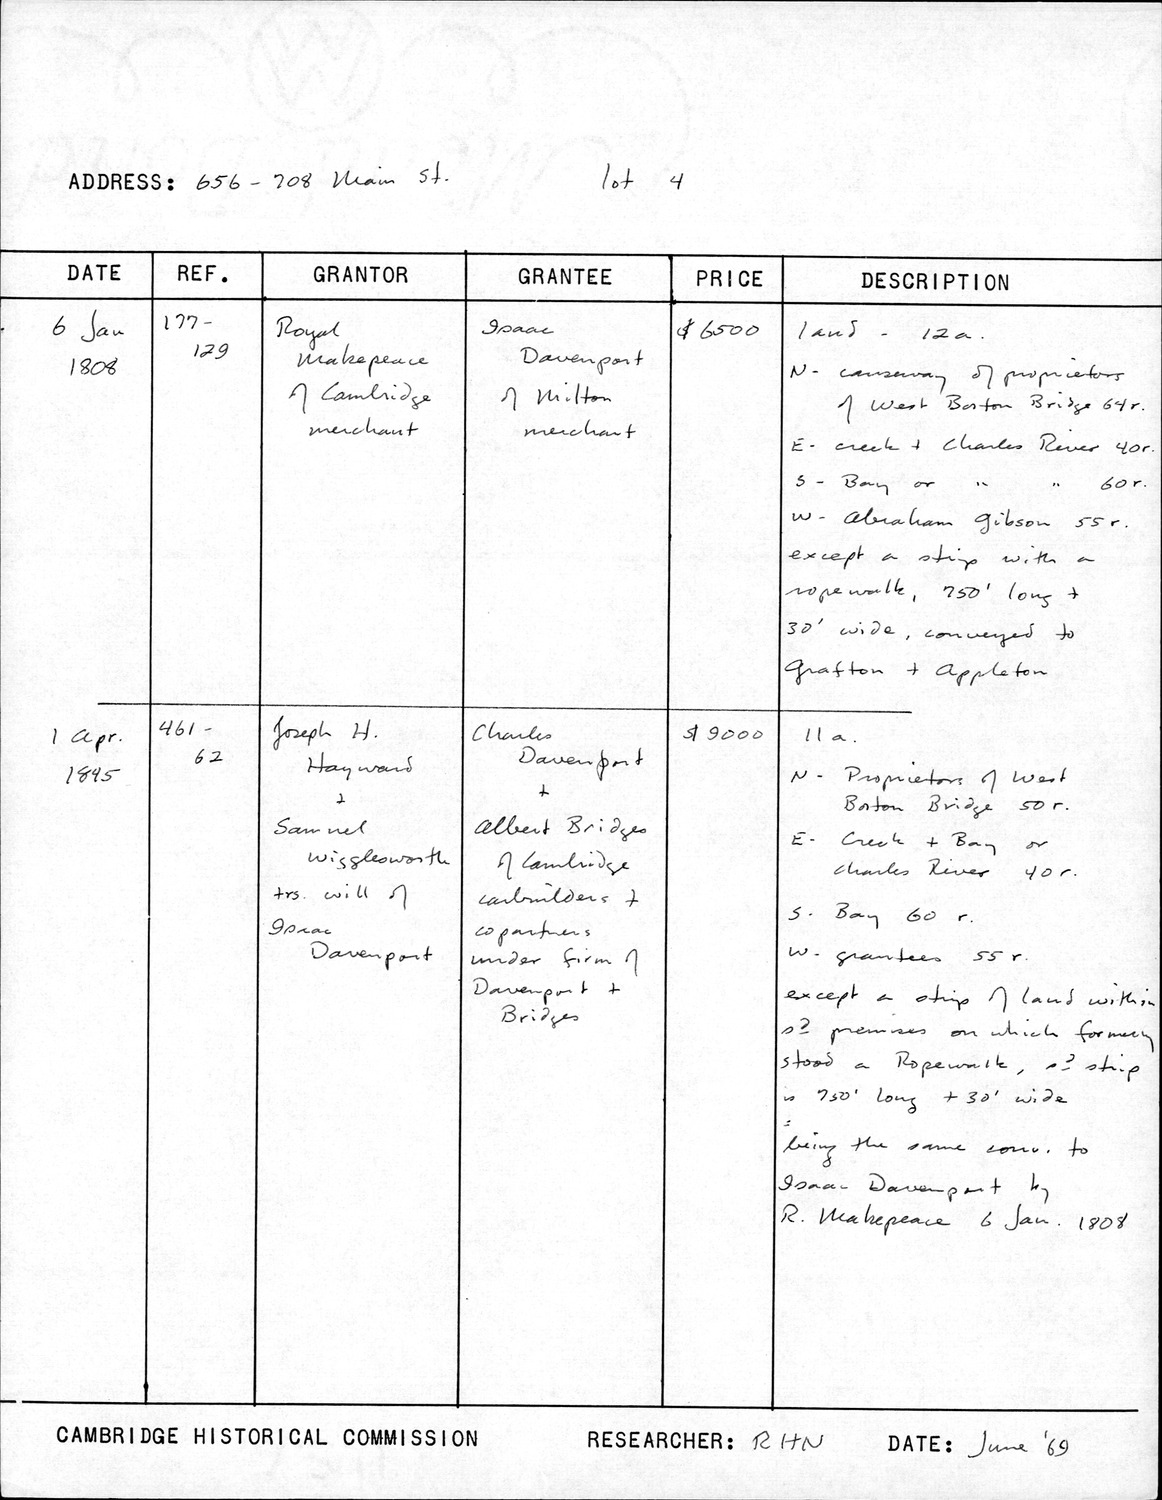 ADDRESS: 656-708 Main St. lot 4
DATE REF. GRANTOR GRANTEE PRICE DESCRIPTION
6 Jan
1808
177-
129
Royal
Makepeace
of Cambridge
merchant
Isaac
Davenport
of Milton
merchant
$6500
land - 12a.
N- causeway of proprietors
of West Boston Bridge 64r.
E- creek + Charles River 40r.
S- Bay or " " 60r.
W- Abraham Gibson 55r.
except a strip with a
ropewalk, 750' long +
30' wide, conveyed to
Grafton + Appleton
1 Apr.
1845
461-
62
Joseph H.
Hayward
+
Samuel
Wigglesworth
trs. will of
Isaac
Davenport
Charles
Davenport
+
Albert Bridges
of Cambridge
carbuilders +
copartners
under firm of
Davenport +
Bridges
$9000
11a.
N- Proprietors of West
Boston Bridge 50r.
E- Creek + Bay or
Charles River 40r.
S. Bay 60 r.
W- grantees 55r.
except a strip of land within
sd premises on which formerly
stood a Ropewalk, sd strip
is 750' long + 30' wide
being the same conv. to
Isaac Davenport by
R. Makepeace 6 Jan. 1808
CAMBRIDGE HISTORICAL COMMISSION RESEARCHER: RHN DATE: June '69